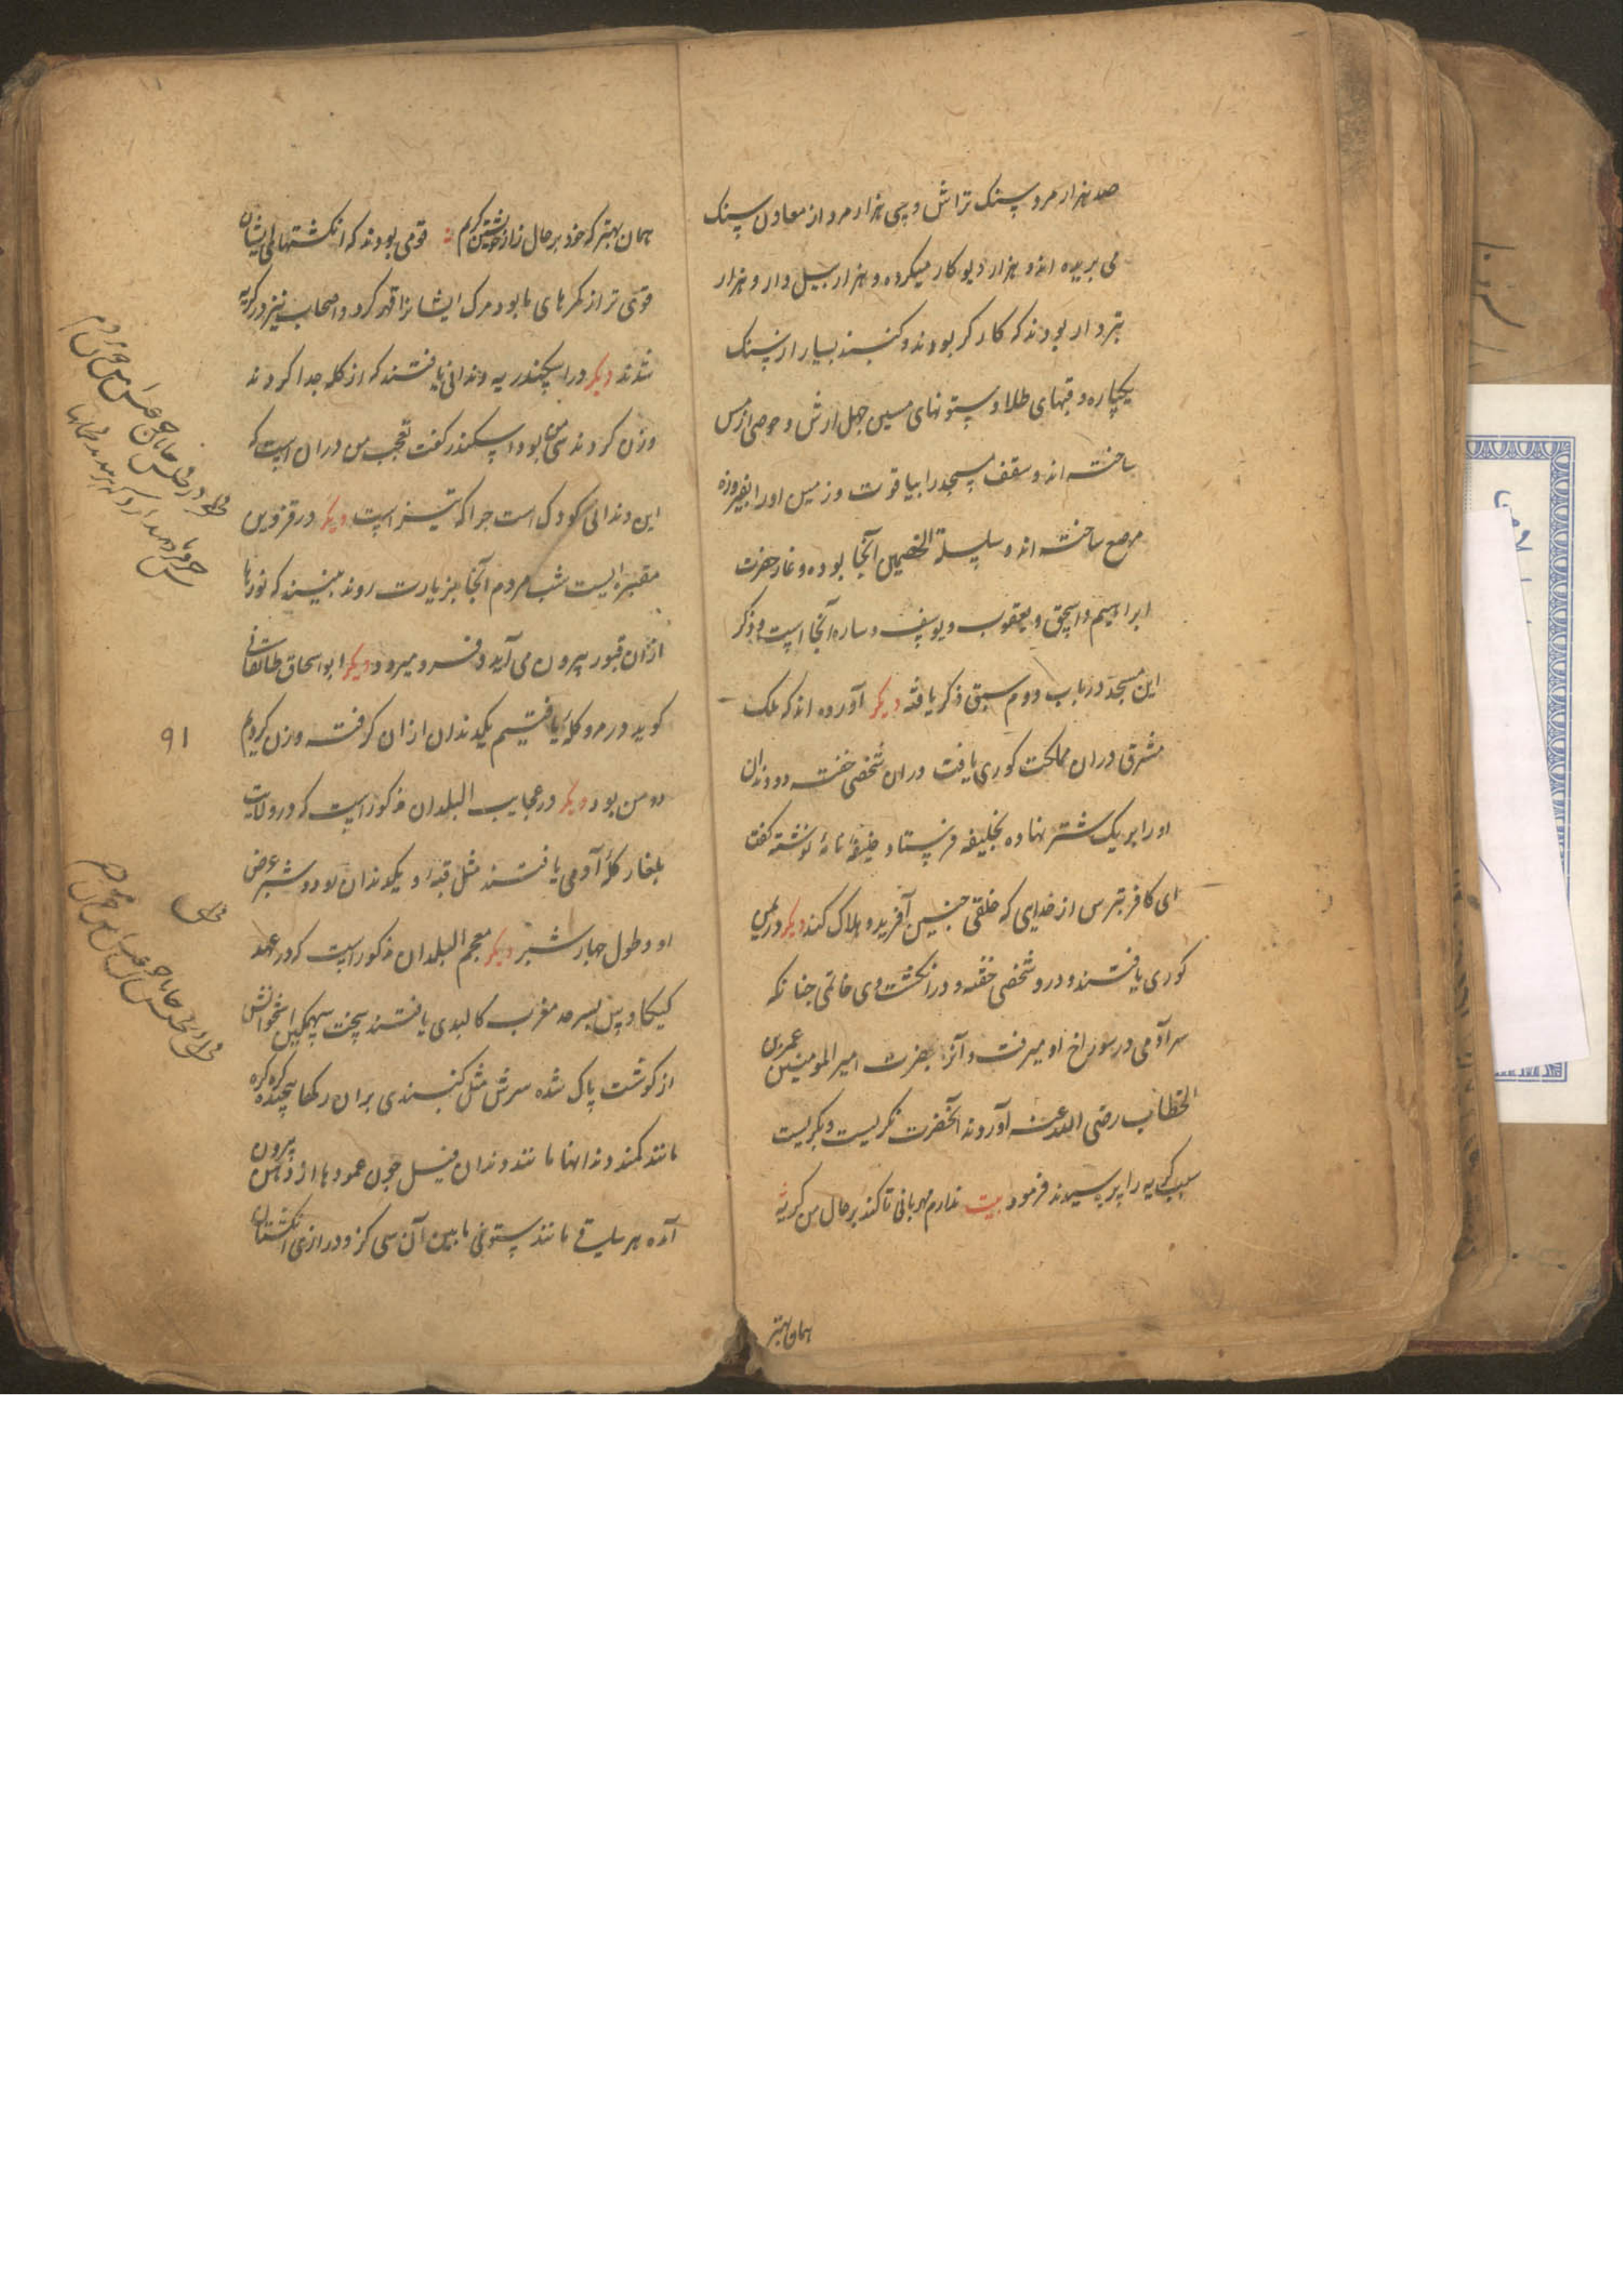 صد هزار مرد سنک تراش و سی هزار مرد از معادن سنک
می بریده اند و هزار دیو کار میکرده و هزار بیل دار و هزار
تبردار بودند که کارکر بودند و کنبد بسیار از سنک
یکپاره و قبهای طلا و ستونهای مسین چهل ارش و حوضی از مس
ساخته اند و سقف مسجد را بیاقوت و زمین او را بفیروزه
مرصع ساخته اند و سلسلة الخصمین آنجا بوده و غار حضرت
ابراهیم و اسحق و یعقوب و یوسف و ساره آنجا است و ذکر
این مسجد در باب دوم سبق ذکر یافته دیکر آورده اند که ملک
مشرق در ان مملکت کوری یافت در ان شخصی خفته دو دندان
او را بر یک شتر نهاده بخلیفه فرستاد خلیفه نامه نوشته کفت
ای کافر بترس از خدایی که خلقی چنین آفریده و هلاک کند دیکر در یمن
کوری یافتند و درو شخصی خفته و در انکشت وی خاتمی چنانکه
سر آدمی در سوراخ او میرفت و آنرا بحضرت امیر المومنین عمر بن
الخطاب رضی الله عنه آوردند آنحضرت نکریست و بکریست
سبب کریه را پرسیدند فرمود بیت ندارم مهربانی تا کند بر حال من کریه
همان بهتر
همان بهتر که خود بر حال زار خویشتن کریم قومی بودند که انکشتهای ایشان
قوی تر از کمرهای ما بود مرک ایشانرا قهر کرد و اصحاب نیز در کریه
شدند دیکر در اسکندریه دندانی یافتند که از کله جدا کردند
وزن کردند سی من بود اسکندر کفت تعجب من در ان است که
این دندانی کودک است چرا که تیز است دیکر در قزوین
مقبره ایست شب مردم آنجا بزیارت روند بینند که نورها
از ان قبور بیرون می آید و فرو میرود دیکر ابو اسحاق طالقانی
کوید در مرو کله یافتیم یکدندان از ان کرفته وزن کردیم
دو من بود دیکر در عجایب البلدان مذکور است که در ولایت
بلغار کله آدمی یافتند مثل قبه و یکدندان او دو شبر عرض
او و طول چهار شبر دیکر معجم البلدان مذکور است که در عهد
کیکاوس بسرحد مغرب کالبدی یافتند سخت سهمکین استخوانش
از کوشت پاک شده سرش مثل کنبدی بران رکها پیچیده کره کره
مانند کمند دندانها مانند دندان فیل چون عمودها از دهن بیرون
آمده هر ساقی مانند ستونی مابین آن سی کز و درازی انکشتان
۹۱